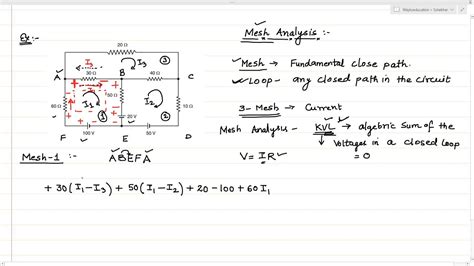 Ex:-
20 Ω
I₃
3
A
30 Ω
B
40 Ω
C
60 Ω
I₁
50 Ω
I₂
10 Ω
1
2
F
100 V
E
50 V
D
Mesh Analysis :-
Mesh → Fundamental close path.
Loop - any closed path in the circuit
3- Mesh → Current
Mesh Analysis - KVL → algebric sum of the
Voltages in a closed loop
V = IR
= 0
Mesh-1 :- ABEFA
+ 30(I₁-I₃) + 50(I₁-I₂) + 20 - 100 + 60 I₁